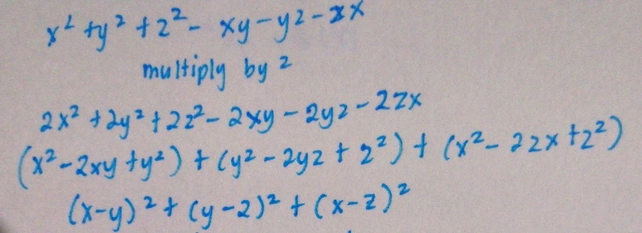 x² + y² + z² - xy - yz - zx
multiply by 2
2x² + 2y² + 2z² - 2xy - 2yz - 2zx
(x² - 2xy + y²) + (y² - 2yz + z²) + (x² - 2zx + z²)
(x-y)² + (y-z)² + (x-z)²